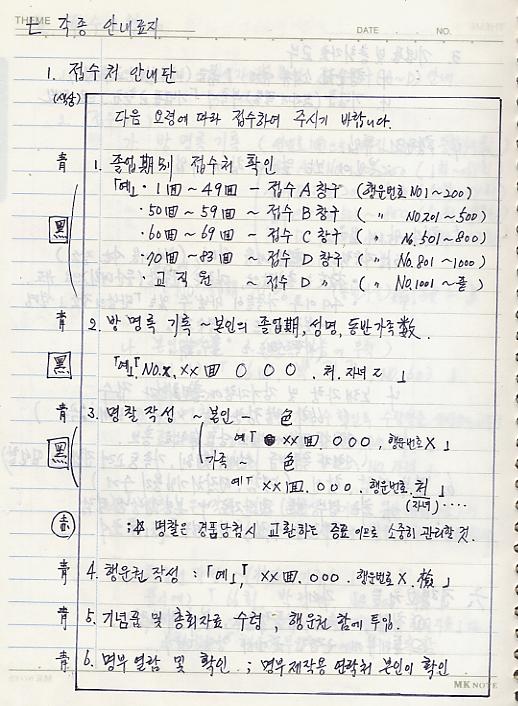 THEME
DATE NO.
七. 각종 안내표지
1. 접수처 안내판
(색상)
다음 요령에 따라 접수하여 주시기 바랍니다.
青 1. 졸업期別 접수처 확인
「예」· 1回 ~ 49回 - 접수 A 창구 (행운번호 NO1 ~ 200)
黑 · 50回 ~ 59回 ~ 접수 B 창구 ( 〃 NO.201 ~ 500)
· 60回 ~ 69回 - 접수 C 창구 ( 〃 No. 501 ~ 800)
· 70回 ~ 83回 ~ 접수 D 창구 ( 〃 No. 801 ~ 1000)
· 교직원 ~ 접수 D 〃 ( 〃 No. 1001 ~ 끝)
青 2. 방명록 기록 ~ 본인의 졸업期, 성명, 동반가족数.
黑 「예」 NO.X, XX回 O O O . 처. 자녀 2 」
青 3. 명찰 작성 ~ 본인 - 色
黑 예「 XX回. OOO, 행운번호 X 」
가족 ~ 色
예「 XX回. OOO. 행운번호. 처 」
(자녀) ····
赤 ; 명찰은 경품당첨시 교환하는 증표이므로 소중히 관리할 것.
青 4. 행운권 작성 : 「예」, XX回. OOO. 행운번호 X. 」
青 5. 기념품 및 총회자료 수령 ; 행운권 함에 투입.
青 6. 명부 열람 및 확인 . ; 명부제작용 연락처 본인이 확인
MK NOTE